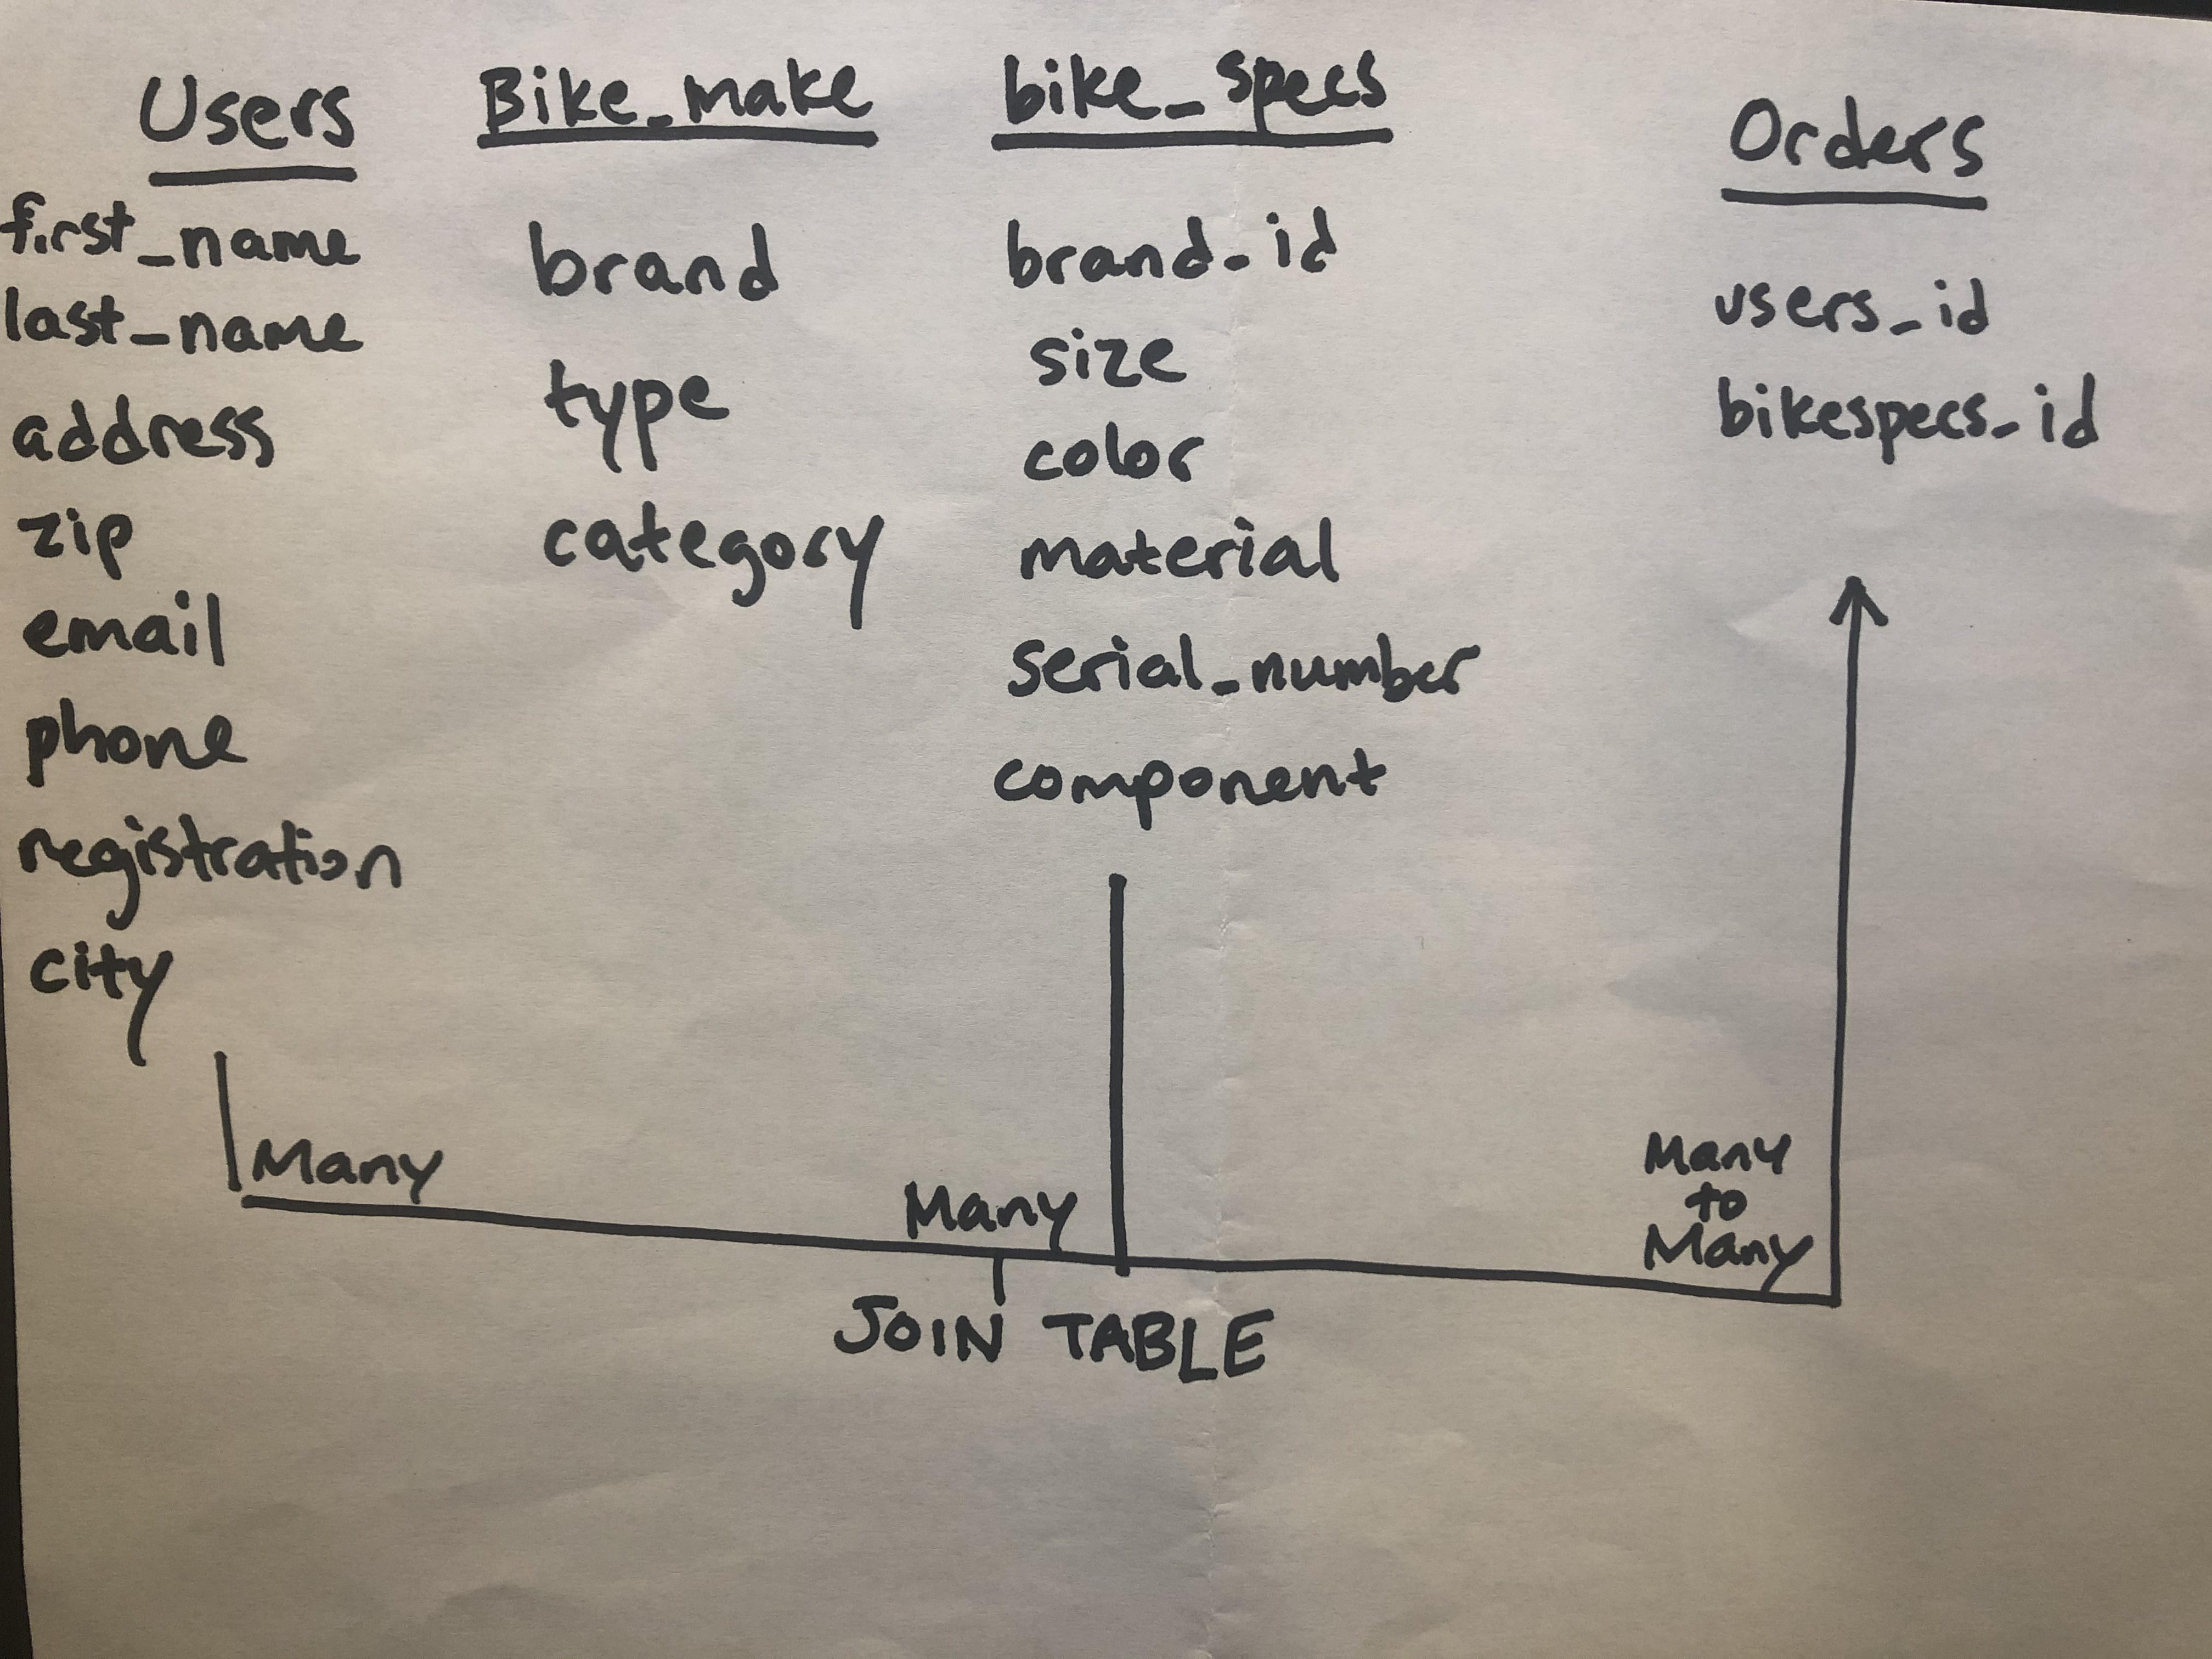 Users
first_name
last_name
address
zip
email
phone
registration
city
Bike_make
brand
type
category
bike_specs
brand_id
size
color
material
serial_number
component
Orders
users_id
bikespecs_id
Many
Many
Many
to
Many
JOIN TABLE